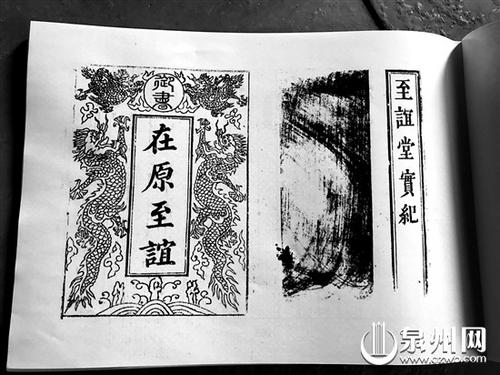 御書
在原至誼
至誼堂實紀
泉州网
www.qzwb.com